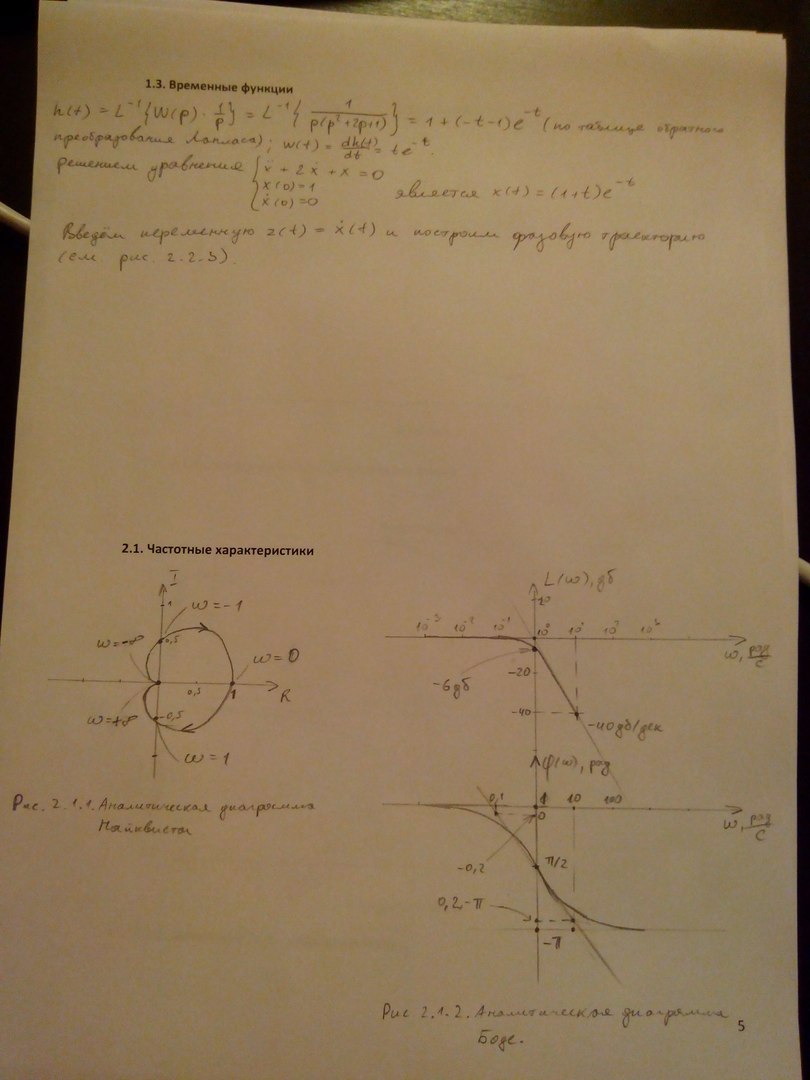 1.3. Временные функции
h(t) = L⁻¹{W(p) · 1/p} = L⁻¹{1/(p(p²+2p+1))} = 1 + (-t-1)e^-t (по таблице обратного
преобразования Лапласа); w(t) = dh(t)/dt = te^-t.
решением уравнения { ẍ + 2ẋ + x = 0
x(0) = 1
ẋ(0) = 0
является x(t) = (1+t)e^-t
Введём переменную z(t) = ẋ(t) и построим фазовую траекторию
(см. рис. 2.2.3).
2.1. Частотные характеристики
I
1
w = -1
w = -∞
0,5
w = 0
0,5
1
R
w = +∞
-0,5
w = 1
Рис. 2.1.1. Аналитическая диаграмма
Найквиста
L(w), дб
20
10⁻³ 10⁻² 10⁻¹ 10⁰ 10¹ 10² 10³
w, рад/с
-6 дб
-20
-40
-40 дб/дек
φ(w), рад
0,1 1 10 100
0
w, рад/с
-0,2
π/2
0,2-π
-π
Рис 2.1.2. Аналитическая диаграмма
Боде.
5